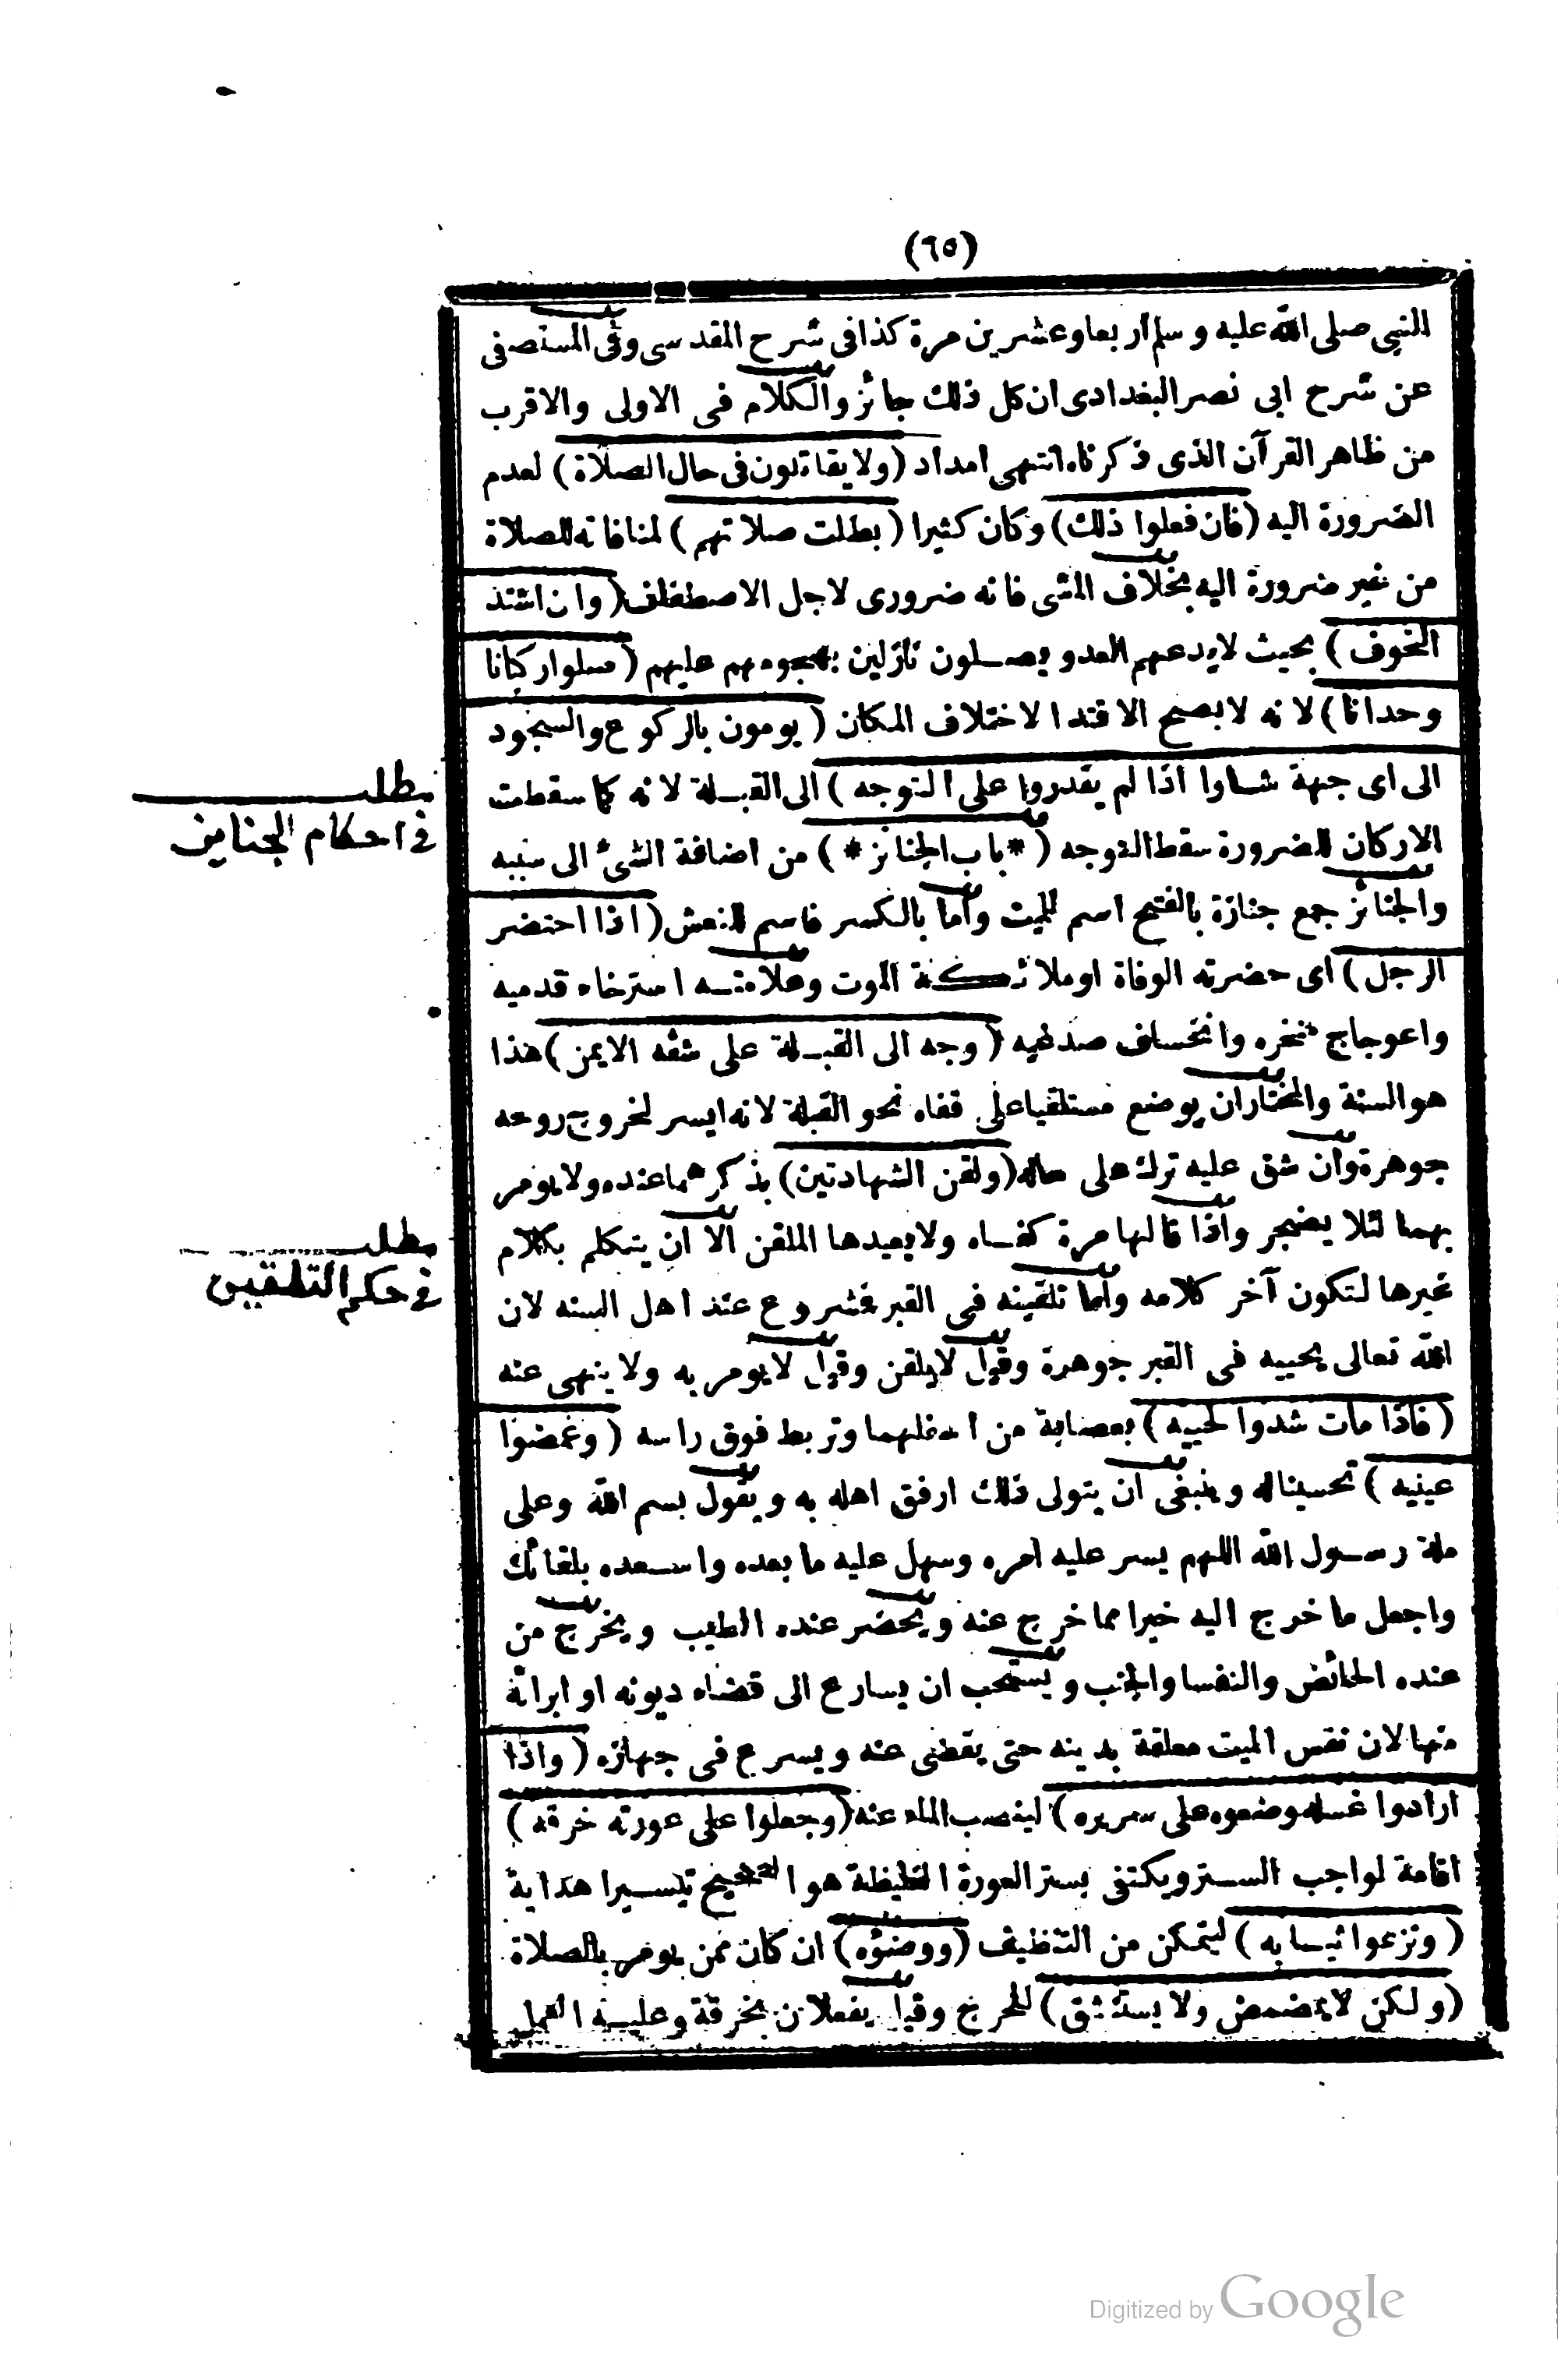 (٦٥)
النبي صلى الله عليه وسلم اربعا وعشرين مرة كذا فى شرح المقدسى وفى المستصفى
عن شرح ابى نصر البغدادى ان كل ذلك جائز والكلام فى الاولى والاقرب
من ظاهر القرآن الذى ذكرناه انتهى امداد (ولا يقاتلون فى حال الصلاة) لعدم
الضرورة اليه (فان فعلوا ذلك) وكان كثيرا (بطلت صلاتهم) لمنافاته للصلاة
من غير ضرورة اليه بخلاف المشى فانه ضرورى لاجل الاصطفاف (وان اشتد
الخوف) بحيث لا يدعهم العدو يصلون نازلين بهجومهم عليهم (صلوا ركبانا
وحدانا) لانه لا يصح الاقتدا لاختلاف المكان (يومون بالركوع والسجود
الى اى جهة شاوا اذا لم يقدروا على التوجه) الى القبلة لانه كما سقطت
الاركان للضرورة سقط التوجه (*باب الجنائز*) من اضافة الشئ الى سببه
والجنائز جمع جنازة بالفتح اسم للميت وأما بالكسر فاسم للنعش (اذا احتضر
الرجل) اى حضرته الوفاة او ملائكة الموت وعلامته استرخاء قدميه
واعوجاج منخره وانخساف صدغيه (وجه الى القبلة على شقه الايمن) هذا
هو السنة والمختار ان يوضع مستلقيا على قفاه نحو القبلة لانه ايسر لخروج روحه
جوهرة وان شق عليه ترك على حاله (ولقن الشهادتين) بذكرهما عنده ولا يومر
بهما لئلا يضجر واذا قالها مرة كفاه ولا يعيدها الملقن الا ان يتكلم بكلام
غيرها لتكون آخر كلامه وأما تلقينه فى القبر فمشروع عند اهل السنه لان
الله تعالى يحييه فى القبر جوهرة وقيل لا يلقن وقيل لا يومر به ولا ينهى عنه
(فاذا مات شدوا لحييه) بعصابة من اسفلهما وتربط فوق راسه (وغمضوا
عينيه) تحسينا له وينبغى ان يتولى ذلك ارفق اهله به ويقول بسم الله وعلى
ملة رسول الله اللهم يسر عليه امره وسهل عليه ما بعده واسعده بلقائك
واجعل ما خرج اليه خيرا مما خرج عنه ويحضر عنده الطيب ويخرج من
عنده الحائض والنفسا والجنب ويستحب ان يسارع الى قضاء ديونه او ابرائه
منها لان نفس الميت معلقة بدينه حتى يقضى عنه ويسرع فى جهازه (واذا
ارادوا غسله وضعوه على سريره) لينصب الماء عنه (وجعلوا على عورته خرقه)
اقامة لواجب الستر ويكتفى بستر العورة الغليظة هو الصحيح تيسيرا هداية
(ونزعوا ثيابه) ليتمكن من التنظيف (ووضئوه) ان كان ممن يومر بالصلاة
(ولكن لا يتمضمض ولا يستنشق) للحرج وقيل يفعلان بخرقة وعليه العمل
مطلب
فى احكام الجنايز
مطلب
فى حكم التلقين
Digitized by Google